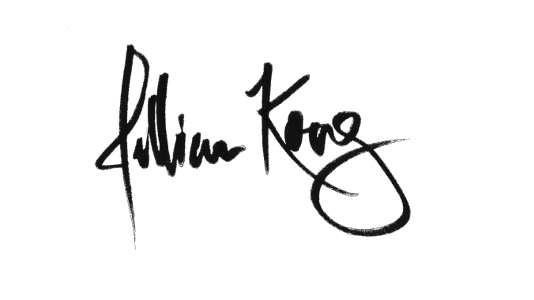 Jillian Kong